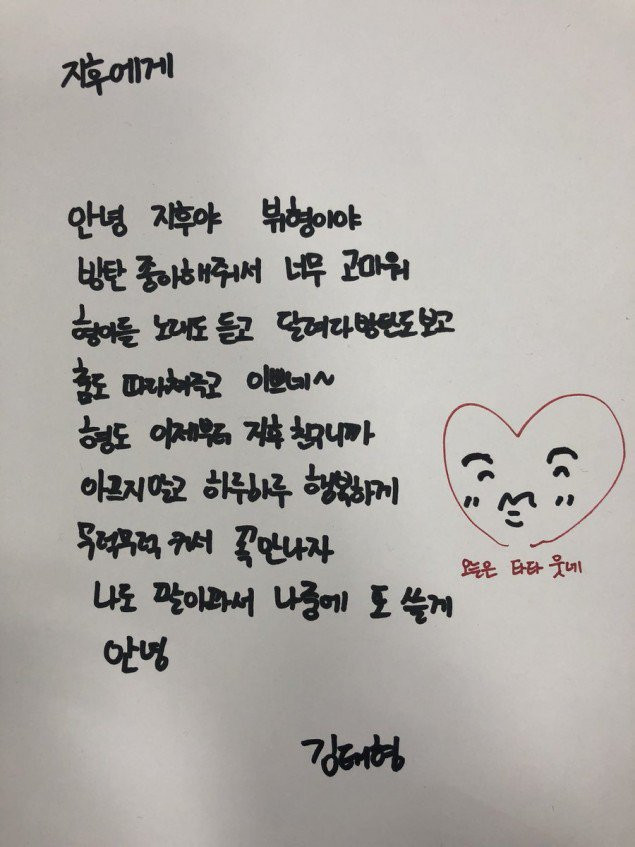 지후에게
안녕 지후야 뷔형이야
방탄 좋아해줘서 너무 고마워
형아들 노래도 듣고 달려라방탄도보고
춤도 따라춰주고 이쁘네~
형도 이제부터 지후친구니까
아프지말고 하루하루 행복하게
무럭무럭 커서 꼭만나자
나도 팔이아파서 나중에 또 쓸게
안녕
오늘은 타타 웃네
김태형